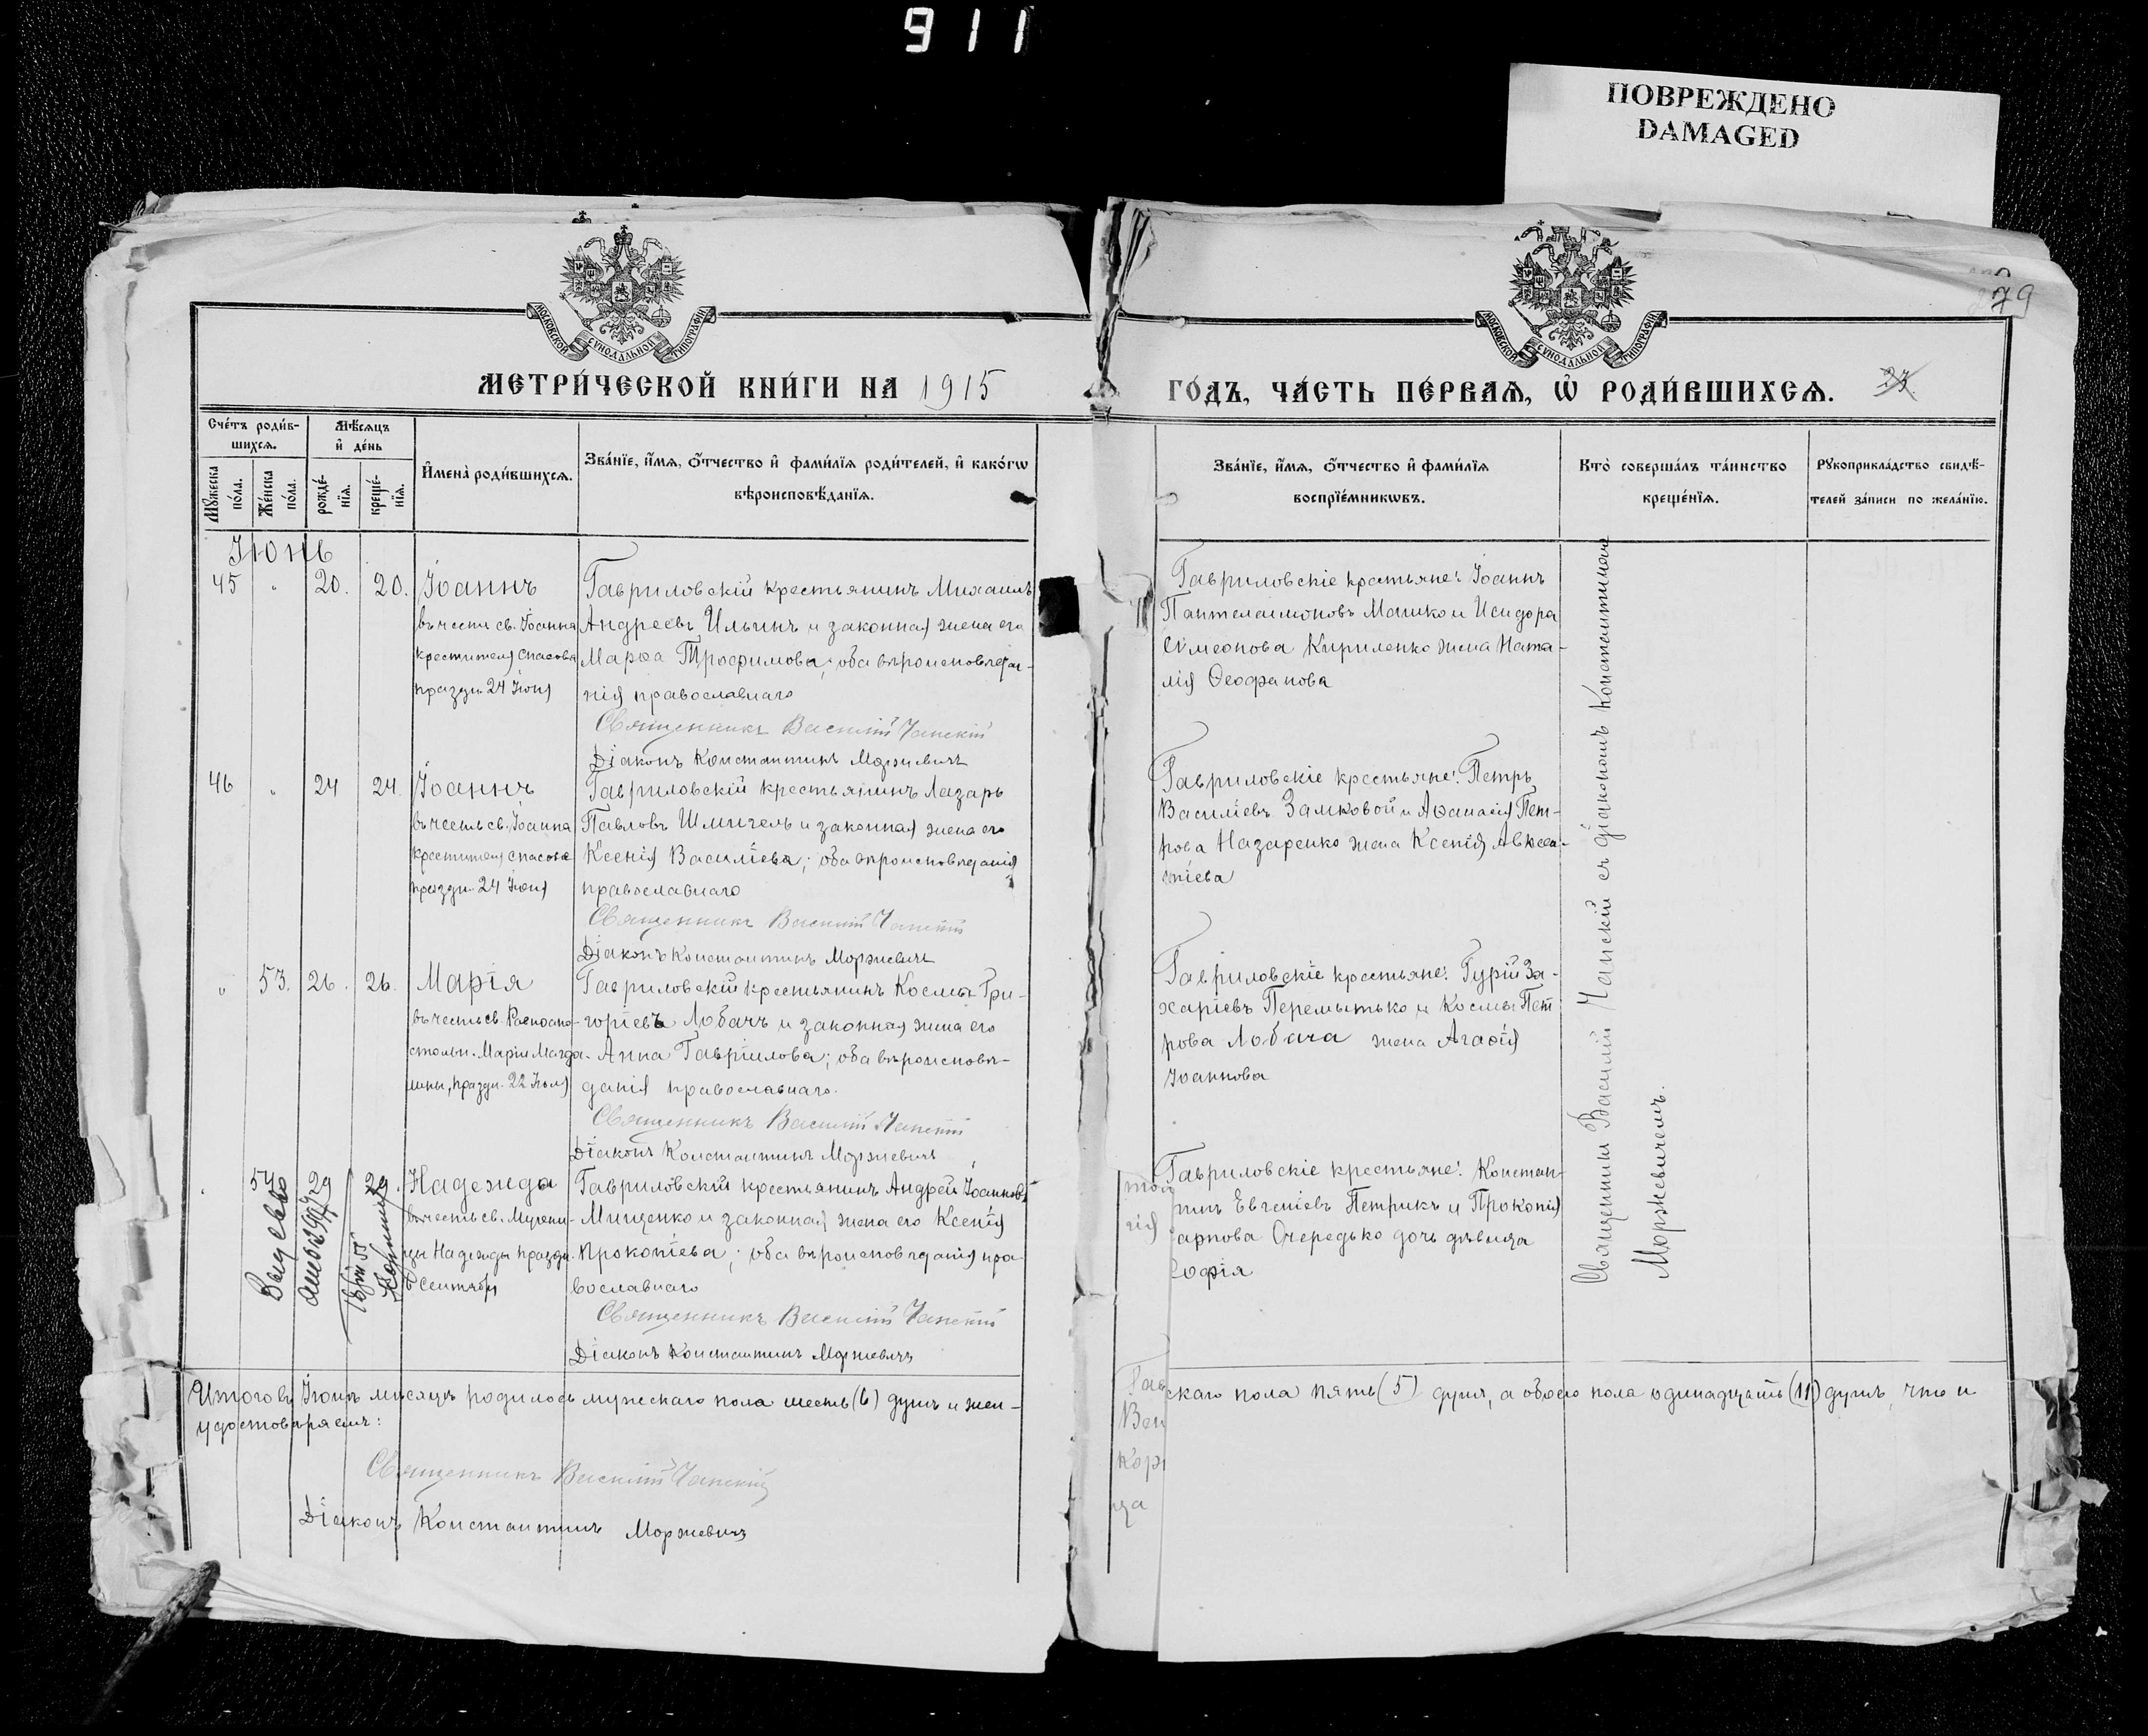 911
ПОВРЕЖДЕНО
DAMAGED
МОСКОВСКОЙ СѴНОДАЛЬНОЙ ТИПОГРАФІИ
МОСКОВСКОЙ СѴНОДАЛЬНОЙ ТИПОГРАФІИ
279
МЕТРИ́ЧЕСКОЙ КНИ́ГИ НА 1915
ГО́ДЪ, ЧА́СТЬ ПЕ́РВАЯ, Ѡ҆ РОДИ́ВШИХСЯ.
23
Сче́тъ роди́в-
шихся.
Мѣ́сяцъ
и҆ де́нь
Мꙋ́жеска
по́ла.
Же́нска
по́ла.
рожде́-
нїя.
креще́-
нїя.
И҆мена̀ роди́вшихся.
Зва́нїе, и҆́мя, ѻ҆́тчество и҆ фами́лїя роди́телей, и҆ како́гѡ
вѣроисповѣ́данїя.
Зва́нїе, и҆́мя, ѻ҆́тчество и҆ фами́лїя
воспрїе́мникѡвъ.
Кто̀ соверша́лъ та́инство
креще́нїя.
Рꙋкоприкла́дство свидѣ́-
телей за́писи по жела́нїю.
Іюнь
45 " 20. 20. Іоаннъ
въ честь св. Іоанна
крестителя Спасова
праздн. 24 Іюня
Гавриловскій крестьянинъ Михаилъ
Андреевъ Ильинъ и законная жена его
Марѳа Трофимова; оба вѣроисповѣда-
нія православнаго
Священникъ Василій Чапскій
Діаконъ Константинъ Моржевичъ
Гавриловскіе крестьяне: Іоаннъ
Пантелеимоновъ Машко и Исидора
Сѵмеонова Кириленко жена Ната-
лія Ѳеофанова
46 " 24 24. Іоаннъ
въ честь св. Іоанна
крестителя Спасова
праздн. 24 Іюня
Гавриловскій крестьянинъ Лазарь
Павловъ Шмигель и законная жена его
Ксенія Василіева; оба вѣроисповѣданія
православнаго
Священникъ Василій Чапскій
Діаконъ Константинъ Моржевичъ
Гавриловскіе крестьяне: Петръ
Василіевъ Замковой и Аѳанасія Пет-
рова Назаренко жена Ксенія Авксен-
тіева
" 53. 26. 26. Марія
въ честь св. Равноапо-
столн. Маріи Магда-
лины, праздн. 22 Іюля
Гавриловскій крестьянинъ Косма Гри-
горіевъ Лобачъ и законная жена его
Анна Гавріилова; оба вѣроисповѣ-
данія православнаго.
Священникъ Василій Чапскій
Діаконъ Константинъ Моржевичъ
Гавриловскіе крестьяне: Гурій За-
харіевъ Перемытько и Космы Пет
рова Лобача жена Агаѳія
Іоаннова
54 29 29. Надежда
въ честь св. Мучени-
цы Надежды праздн.
Сентября
Гавриловскій крестьянинъ Андрей Іоанновъ
Мищенко и законная жена его Ксенія
Прокопіева; оба вѣроисповѣданія пра-
вославнаго
Священникъ Василій Чапскій
Діаконъ Константинъ Моржевичъ
Гавриловскіе крестьяне: Констан-
тинъ Евгеніевъ Петрикъ и Прокопія
арпова Очередько дочь дѣвица
Софія
Священникъ Василій Чапскій съ діакономъ Константиномъ
Моржевичемъ.
Итого въ Іюнѣ мѣсяцѣ родилось мужескаго пола шесть (6) душъ и жен-
скаго пола пять (5) душъ, а обоего пола одинадцать (11) душъ, что и
удостовѣряемъ:
Священникъ Василій Чапскій
Діаконъ Константинъ Моржевичъ